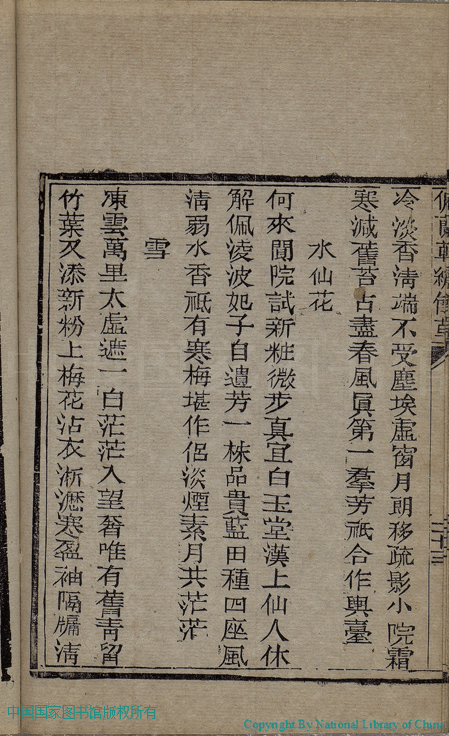 冷淡香清端不受塵埃虛窗月朗移疏影小院霜
寒減舊苔占盡春風眞第一羣芳祗合作輿臺
水仙花
何來閬院試新粧微步真宜白玉堂漢上仙人休
解佩淩波妃子自遺芳一株品貴藍田種四座風
清弱水香祗有寒梅堪作侶淡煙素月共茫茫
雪
凍雲萬里太虛遮一白茫茫入望奢唯有舊青留
竹葉又添新粉上梅花沾衣淅瀝寒盈袖隔牖清
中国国家图书馆版权所有
Copyright By National Library of China